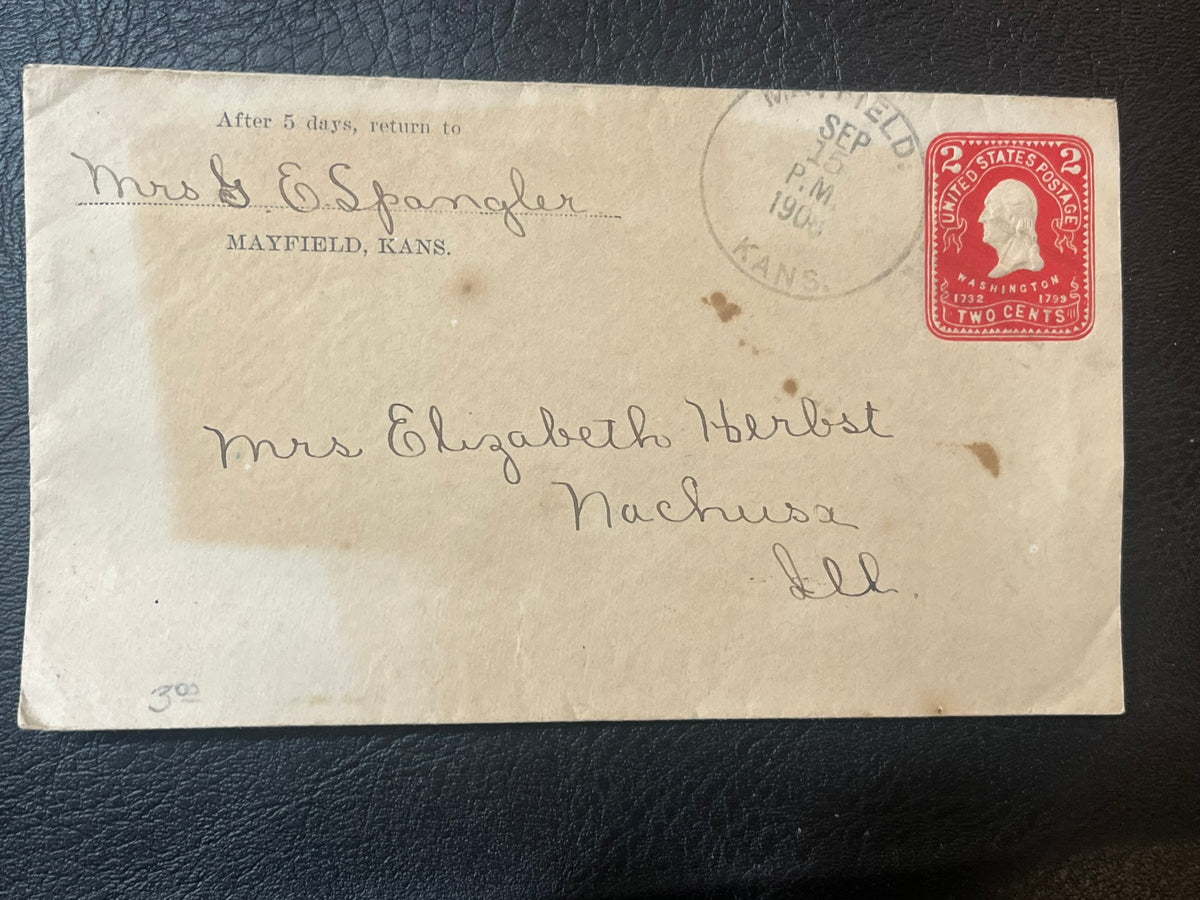 After 5 days, return to
Mrs G. E. Spangler
MAYFIELD, KANS.
MAYFIELD
SEP
15
P.M.
KANS.
2 2
UNITED STATES POSTAGE
WASHINGTON
1732 1799
TWO CENTS
Mrs Elizabeth Herbst
Nachusa
Ill.
3 00